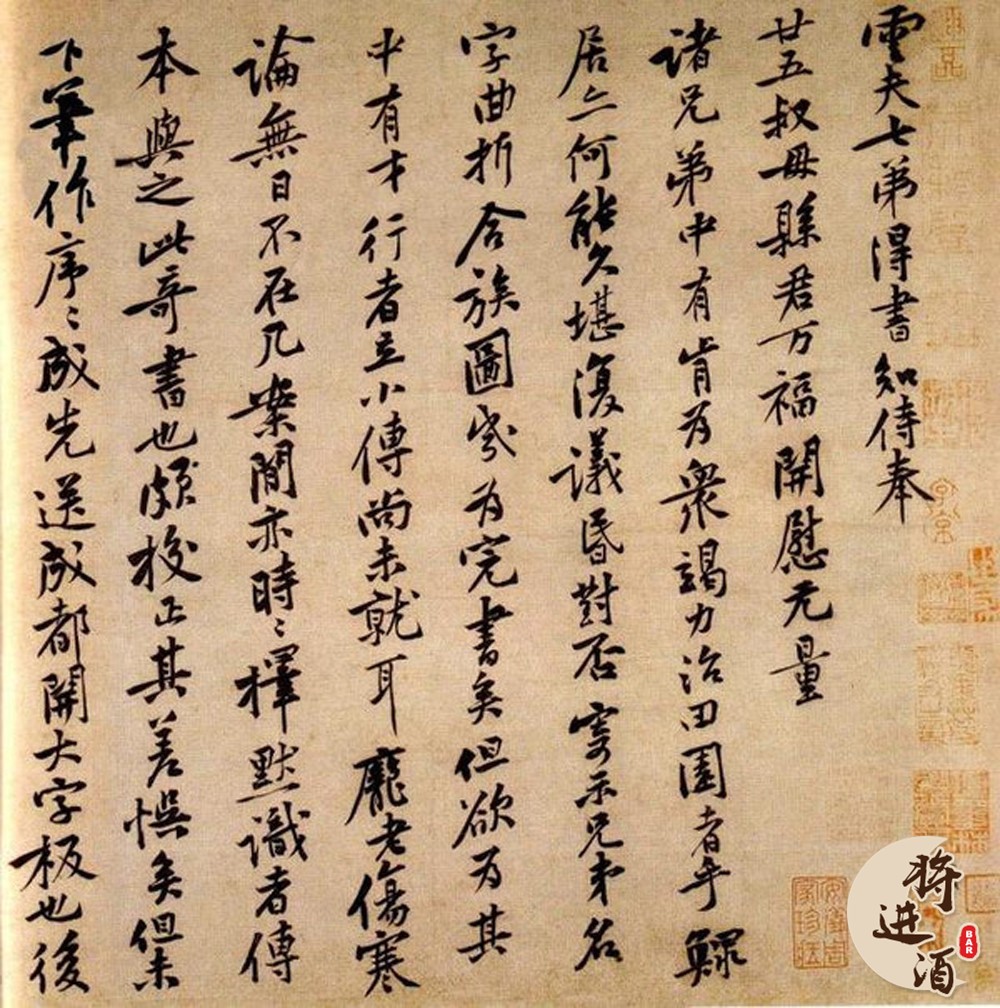 雲夫七弟得書知侍奉
廿五叔母縣君万福開慰无量
諸兄弟中有肯為衆竭力治田園者乎鰥
居亦何能久堪復議昏對否寄示兄弟名
字曲折合族圖歲為完書矣但欲為其
中有才行者立小傳尚未就耳龐老傷寒
論無日不在几案間亦時〻擇默識者傳
本與之此奇書也頗校正其差悞矣但未
下筆作序〻成先送成都開大字板也後
将进酒
BAR